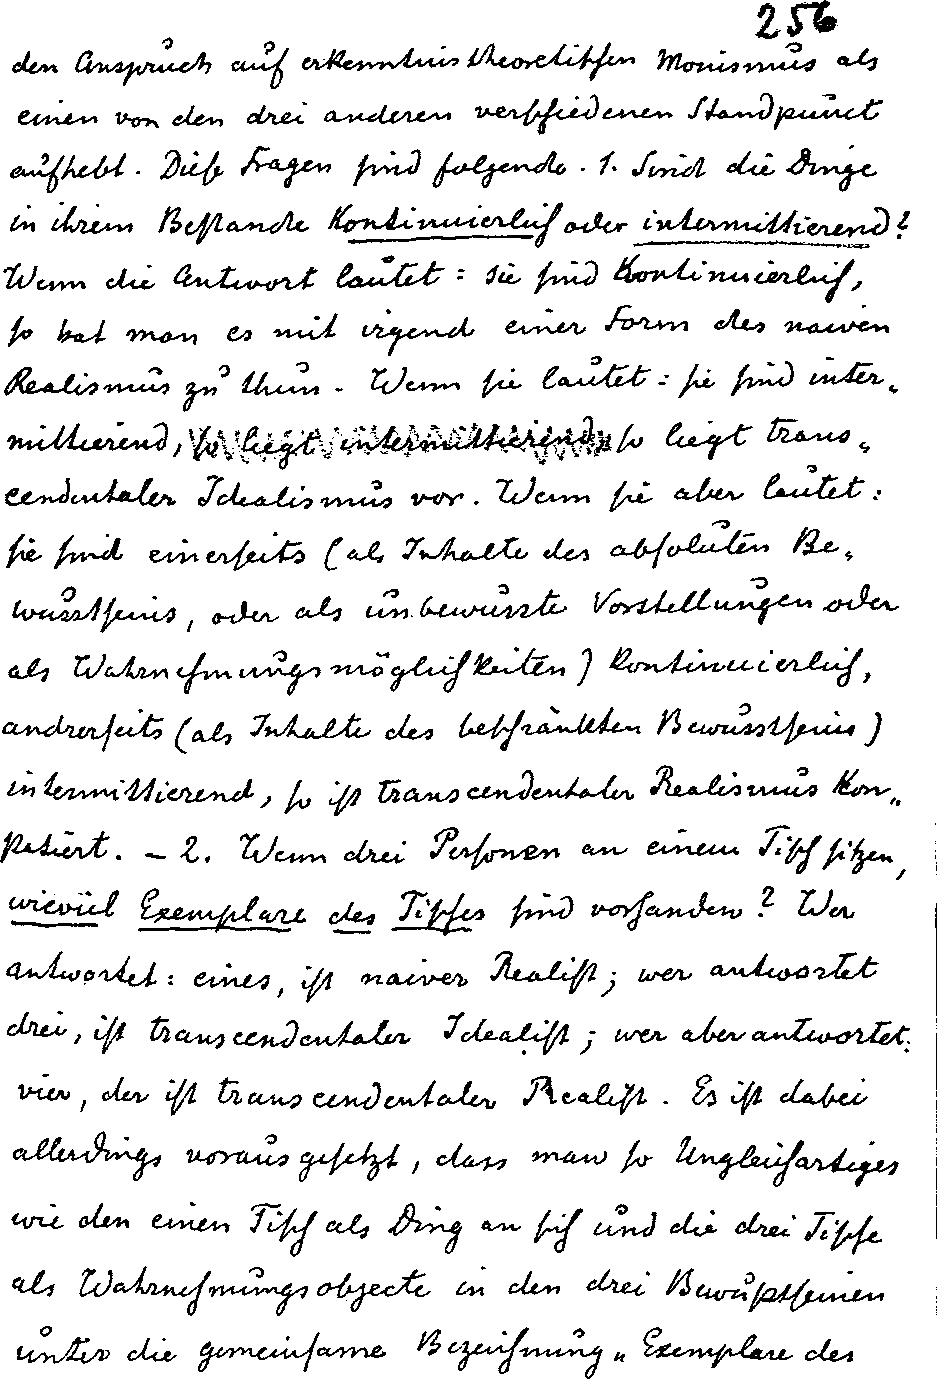 256
den Anspruch auf erkenntnistheoretischen Monismus als
einen von den drei anderen verschiedenen Standpunct
aufhebt. Diese Fragen sind folgende. 1. Sind die Dinge
in ihrem Bestande kontinuierlich oder intermittierend?
Wenn die Antwort lautet: sie sind kontinuierlich,
so hat man es mit irgend einer Form des naiven
Realismus zu thun. Wenn sie lautet: sie sind inter-
mittierend, so liegt intermittierend, so liegt trans-
cendentaler Idealismus vor. Wenn sie aber lautet:
sie sind einerseits (als Inhalte des absoluten Be-
wusstseins, oder als unbewusste Vorstellungen oder
als Wahrnehmungsmöglichkeiten) kontinuierlich,
andrerseits (als Inhalte des beschränkten Bewusstseins)
intermittierend, so ist transcendentaler Realismus kon-
statiert. – 2. Wenn drei Personen an einem Tisch sitzen,
wieviel Exemplare des Tisches sind vorhanden? Wer
antwortet: eines, ist naiver Realist; wer antwortet
drei, ist transcendentaler Idealist; wer aber antwortet:
vier, der ist transcendentaler Realist. Es ist dabei
allerdings vorausgesetzt, dass man so Ungleichartiges
wie den einen Tisch als Ding an sich und die drei Tische
als Wahrnehmungsobjecte in den drei Bewußtseinen
unter die gemeinsame Bezeichnung „Exemplare des